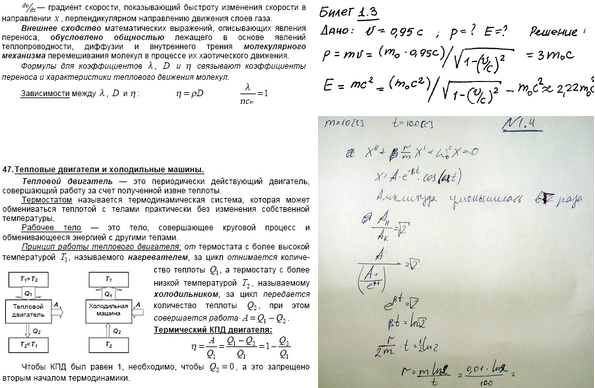 dv/dx — градиент скорости, показывающий быстроту изменения скорости в
направлении x, перпендикулярном направлению движения слоев газа.
Внешнее сходство математических выражений, описывающих явления
переноса, обусловлено общностью лежащего в основе явлений
теплопроводности, диффузии и внутреннего трения молекулярного
механизма перемешивания молекул в процессе их хаотического движения.
Формулы для коэффициентов λ, D и η связывают коэффициенты
переноса и характеристики теплового движения молекул.
Зависимости между λ, D и η: η = ρD λ/ncv
47. Тепловые двигатели и холодильные машины.
Тепловой двигатель — это периодически действующий двигатель,
совершающий работу за счет полученной извне теплоты.
Термостатом называется термодинамическая система, которая может
обмениваться теплотой с телами практически без изменения собственной
температуры.
Рабочее тело — это тело, совершающее круговой процесс и
обменивающееся энергией с другими телами.
Принцип работы теплового двигателя: от термостата с более высокой
температурой T₁, называемого нагревателем, за цикл отнимается количе-
ство теплоты Q₁, а термостату с более
низкой температурой T₂, называемому
холодильником, за цикл передается
количество теплоты Q₂, при этом
совершается работа A = Q₁ − Q₂.
T₁>T₂
Q₁
Тепловой двигатель
A
Q₂
T₂<T₁
T₁
Q₁
Холодильная машина
A
Q₂
T₂
Термический КПД двигателя:
η = A/Q₁ = (Q₁ − Q₂)/Q₁ = 1 − Q₂/Q₁
Чтобы КПД был равен 1, необходимо, чтобы Q₂ = 0, а это запрещено
вторым началом термодинамики.
Билет 1.3
Дано: v = 0,95c ; p = ? E = ? Решение:
p = mv = (m₀ · 0,95c)/√(1−(v/c)²) = 3m₀c
E = mc² = (m₀c²)/√(1−(v/c)²) − m₀c² ≈ 2,22m₀c²
m=10[г] t=100[с] N1.4
X'' + r/m X' + ω₀² X = 0
X = A · e^(-βt) · cos(ωt)
Амплитуда уменьшилась √2 раза
Aн/Aк = √2
A/(A/e^(βt)) = √2
e^(βt) = √2
βt = ln√2
r/2m · t = ½ ln2
r = m ln2/t = 0,01 · ln2/100 =